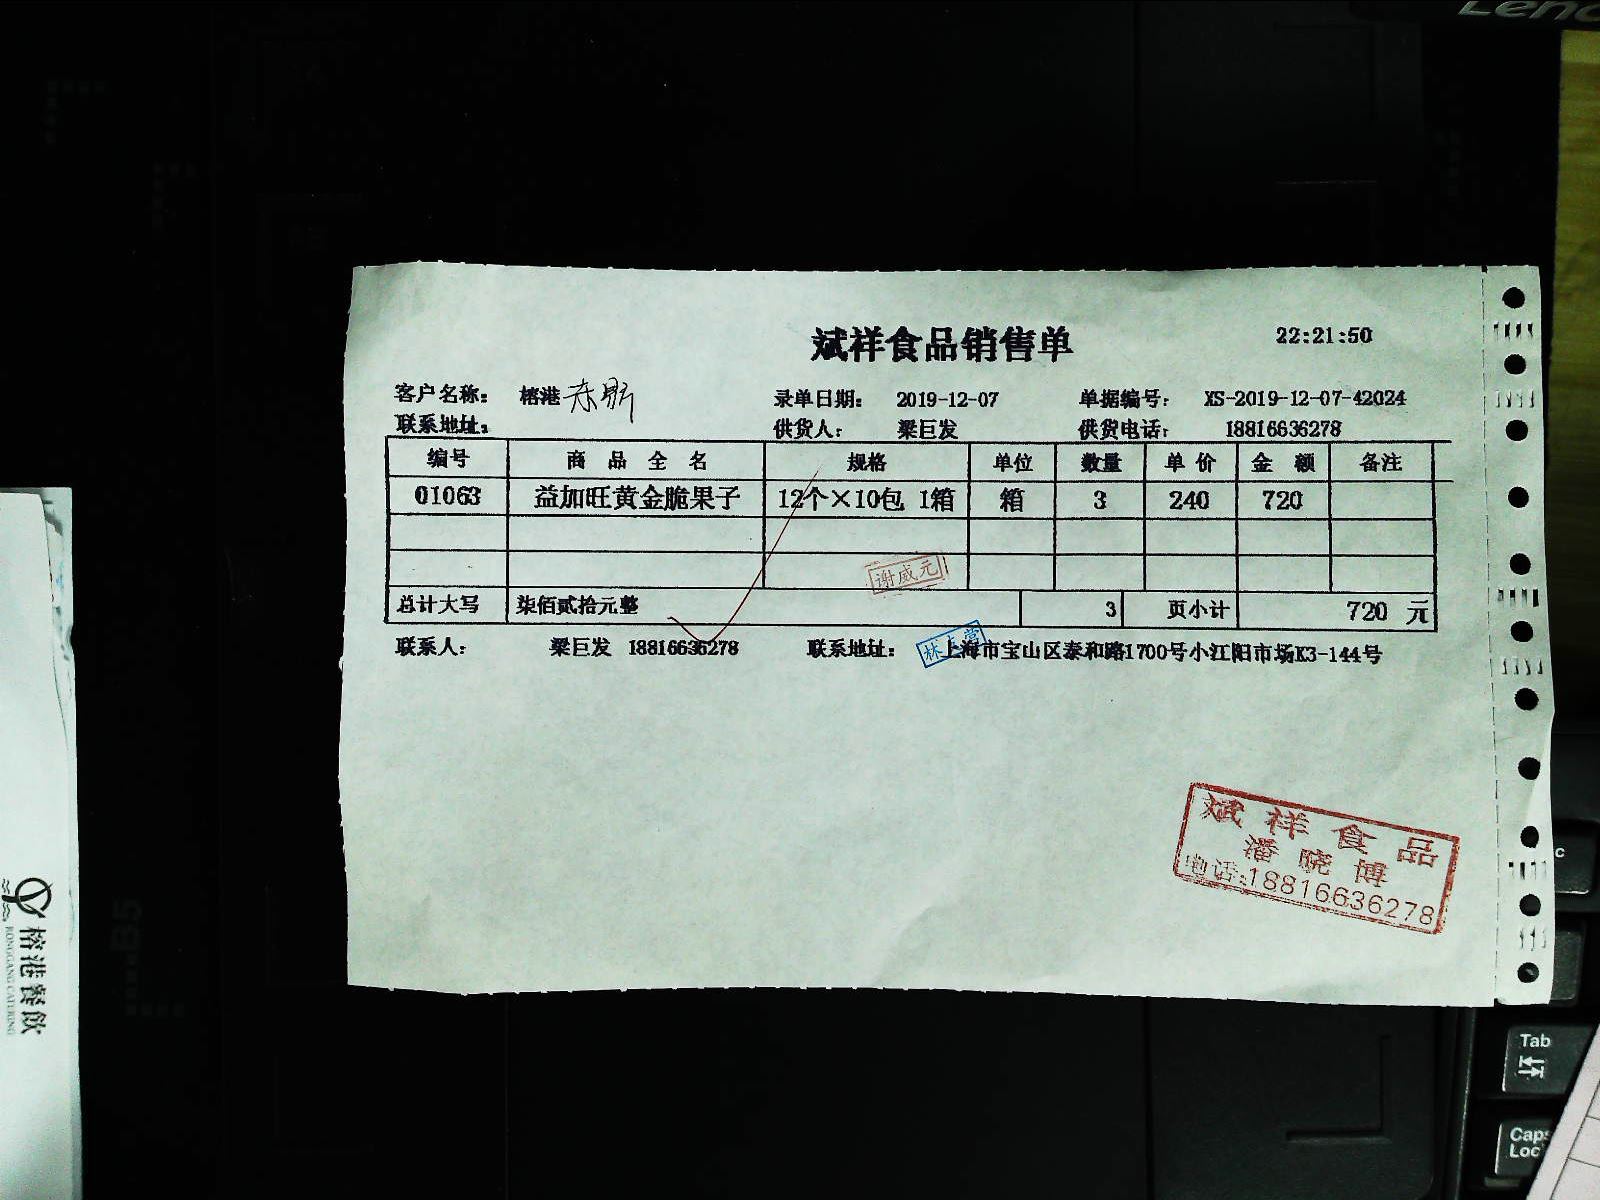 Lenovo
斌祥食品销售单 22:21:50
客户名称: 榕港 录单日期: 2019-12-07 单据编号: XS-2019-12-07-42024
联系地址: 供货人: 梁巨发 供货电话: 18816636278
编号 商品全名 规格 单位 数量 单价 金额 备注
01063 益加旺黄金脆果子 12个×10包 1箱 箱 3 240 720
谢威元
总计大写 柒佰贰拾元整 3 页小计 720 元
联系人: 梁巨发 18816636278 联系地址: 上海市宝山区泰和路1700号小江阳市场K3-144号
斌祥食品
潘晓博
电话:18816636278
榕港餐飲
RONGGANG CATERING
B5
Tab
Caps
Loc